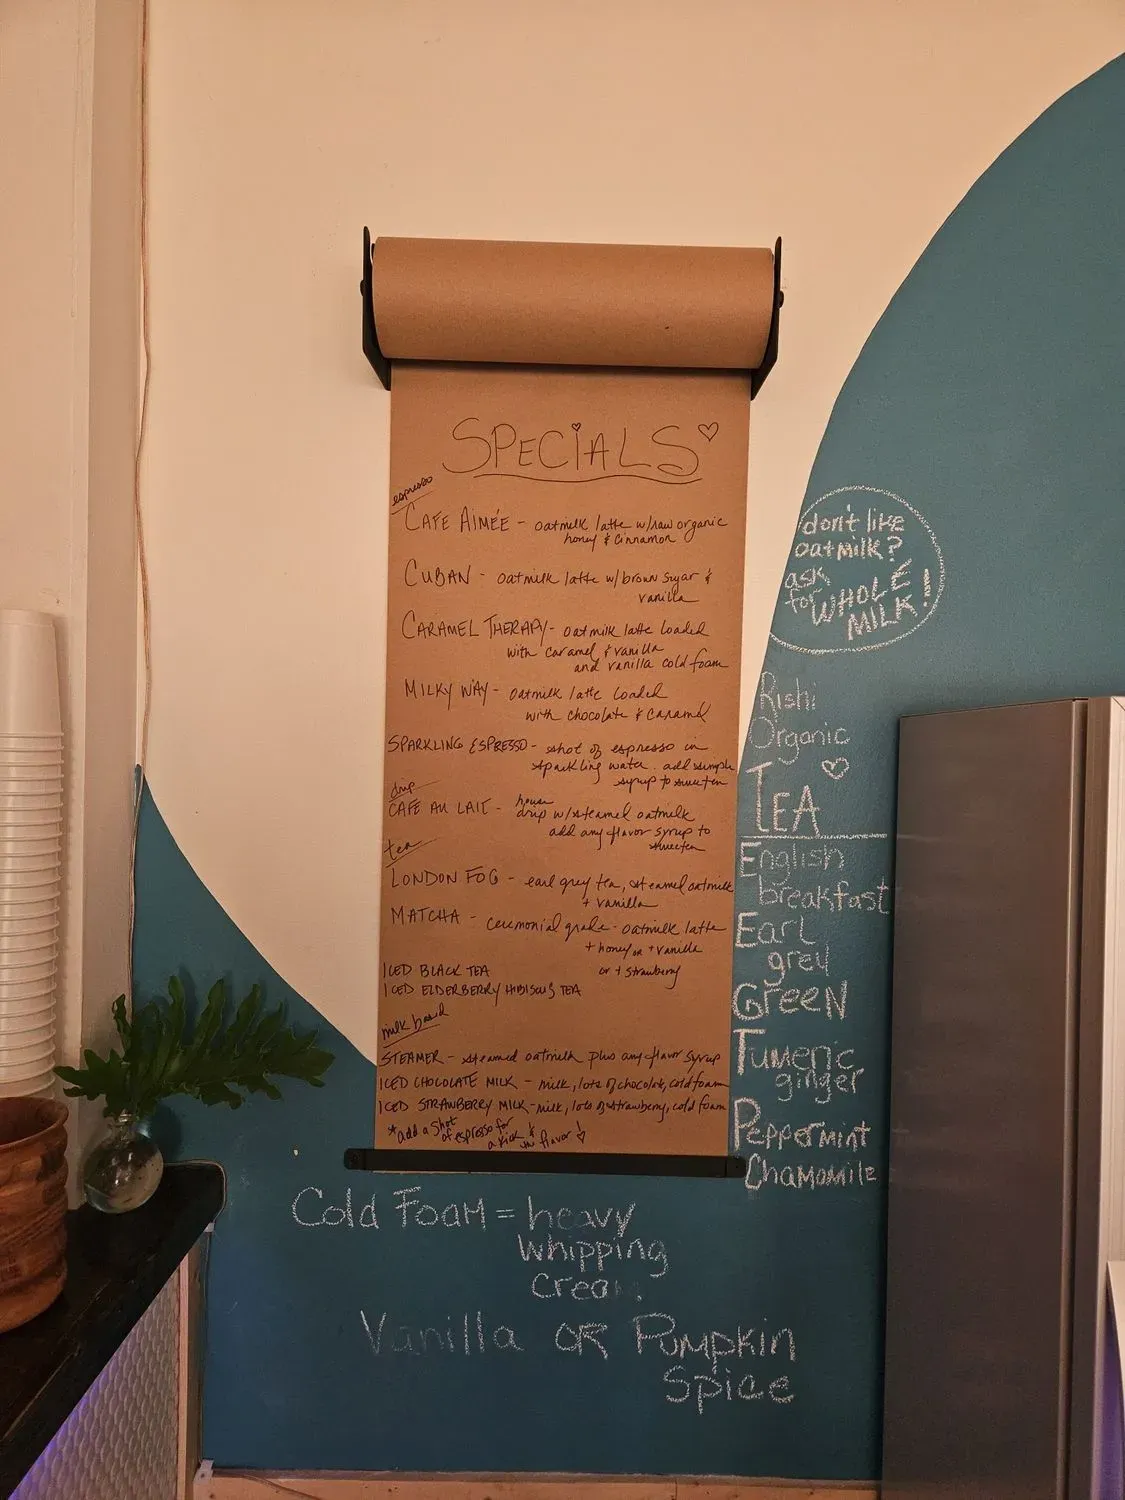 SPECIALS
espresso
CAFE AIMÉE - oatmilk latte w/raw organic
honey & cinnamon
CUBAN - oatmilk latte w/brown sugar &
vanilla
CARAMEL THERAPY - oatmilk latte loaded
with caramel & vanilla
and vanilla cold foam
MILKY WAY - oatmilk latte loaded
with chocolate & caramel
SPARKLING ESPRESSO - shot of espresso in
sparkling water. add simple
syrup to sweeten
drip
CAFE AU LAIT - house drip w/steamed oatmilk
add any flavor syrup to
sweeten
tea
LONDON FOG - earl grey tea, steamed oatmilk
+ vanilla
MATCHA - ceremonial grade - oatmilk latte
+ honey or + vanilla
or + strawberry
ICED BLACK TEA
ICED ELDERBERRY HIBISCUS TEA
milk based
STEAMER - steamed oatmilk plus any flavor syrup
ICED CHOCOLATE MILK - milk, lots of chocolate, cold foam
ICED STRAWBERRY MILK - milk, lots of strawberry, cold foam
*add a shot
of espresso for
a kick & flavor!
don't like
oatmilk?
ask
for WHOLE
MILK!
Rishi
Organic
TEA
English
breakfast
Earl
grey
GREEN
Tumeric
ginger
PEPPERMINT
CHAMOMILE
Cold Foam = heavy
whipping
Crea
Vanilla OR Pumpkin
Spice